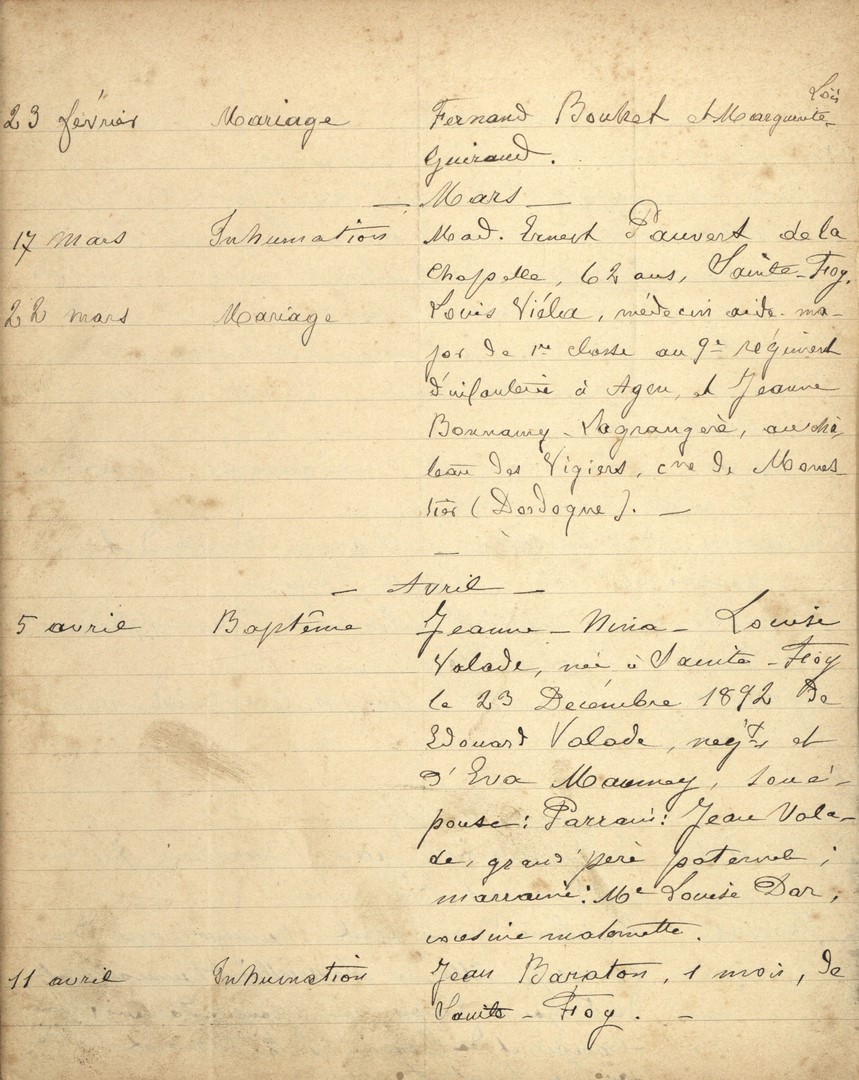 Loïs
23 février Mariage Fernand Bouket et Marguerite-
Guiraud.
— Mars —
17 mars Inhumation Mad. Ernest Pauvert de la
Chapelle, 62 ans, Sainte-Foy.
22 mars Mariage Louis Viéla, médecin aide-ma-
jor de 1re classe au 9e régiment
d'infanterie à Agen, et Jeanne
Bonnamy-Lagrangère, au châ-
teau des Vigiers, cne de Mones-
tier (Dordogne). —
— Avril —
5 avril Baptême Jeanne-Nina-Louise
Valade, née à Sainte-Foy
le 23 Décembre 1892 de
Edouard Valade, négt et
d'Eva Maumey, son é-
pouse: Parrain: Jean Vala-
de, grand'père paternel;
marraine: Me Louise Dar,
cousine maternelle.
11 avril Inhumation Jean Baraton, 1 mois, de
Sainte-Foy. —